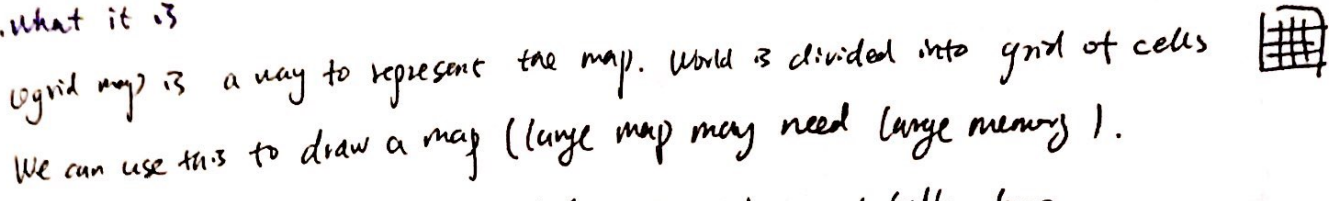 .What it is
(grid map) is a way to represent the map. World is divided into grid of cells
We can use this to draw a map (large map may need large memory).